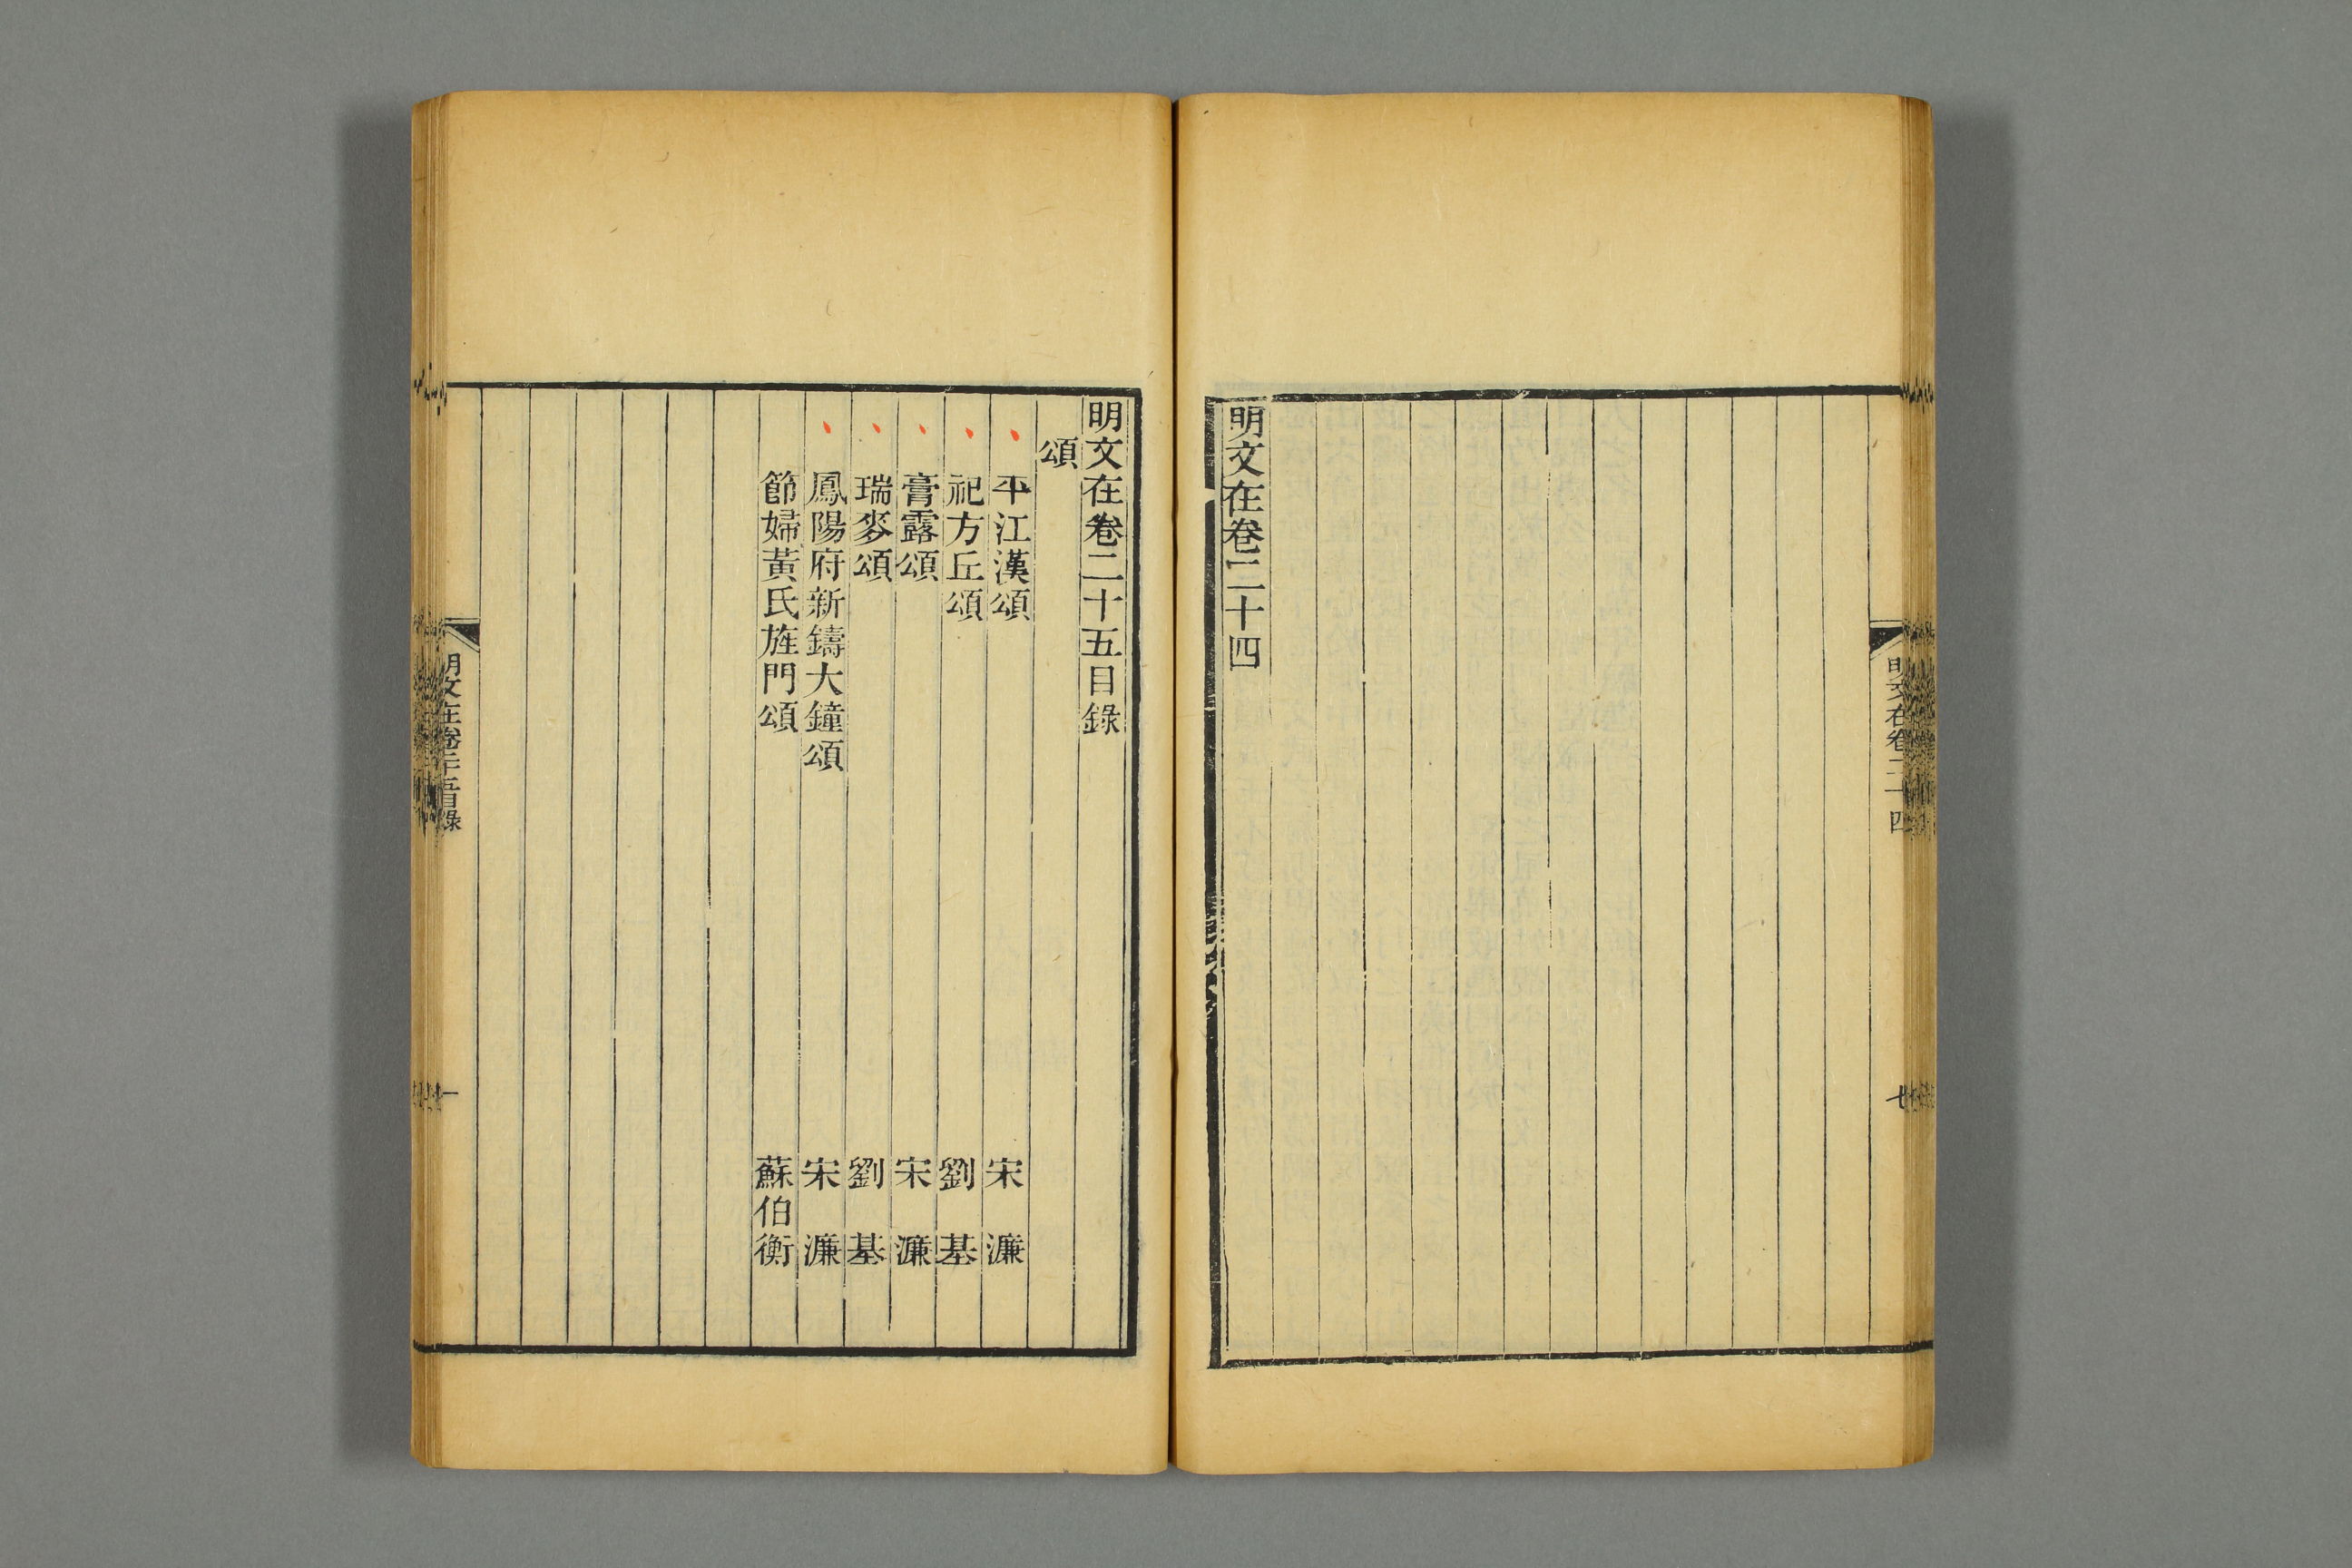 明文在卷二十四
七
明文在卷二十四
明文在卷二十五目錄
頌
平江漢頌　宋濂
祀方丘頌　劉基
膏露頌　宋濂
瑞麥頌　劉基
鳳陽府新鑄大鐘頌　宋濂
節婦黃氏旌門頌　蘇伯衡
明文在卷二十五目錄
一